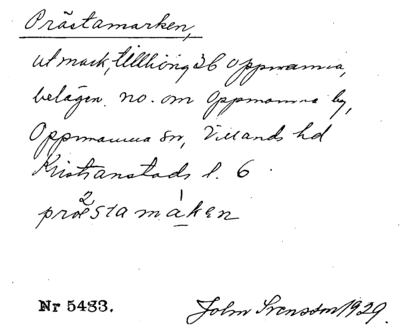 Prästamarken,
utmark, tillhörig 36 Oppmanna,
belägen no. om Oppmanna by,
Oppmanna sn, Villands hd
Kristianstads l. 6.
præ²stamàken
Nr 5483. John Svensson 1929.